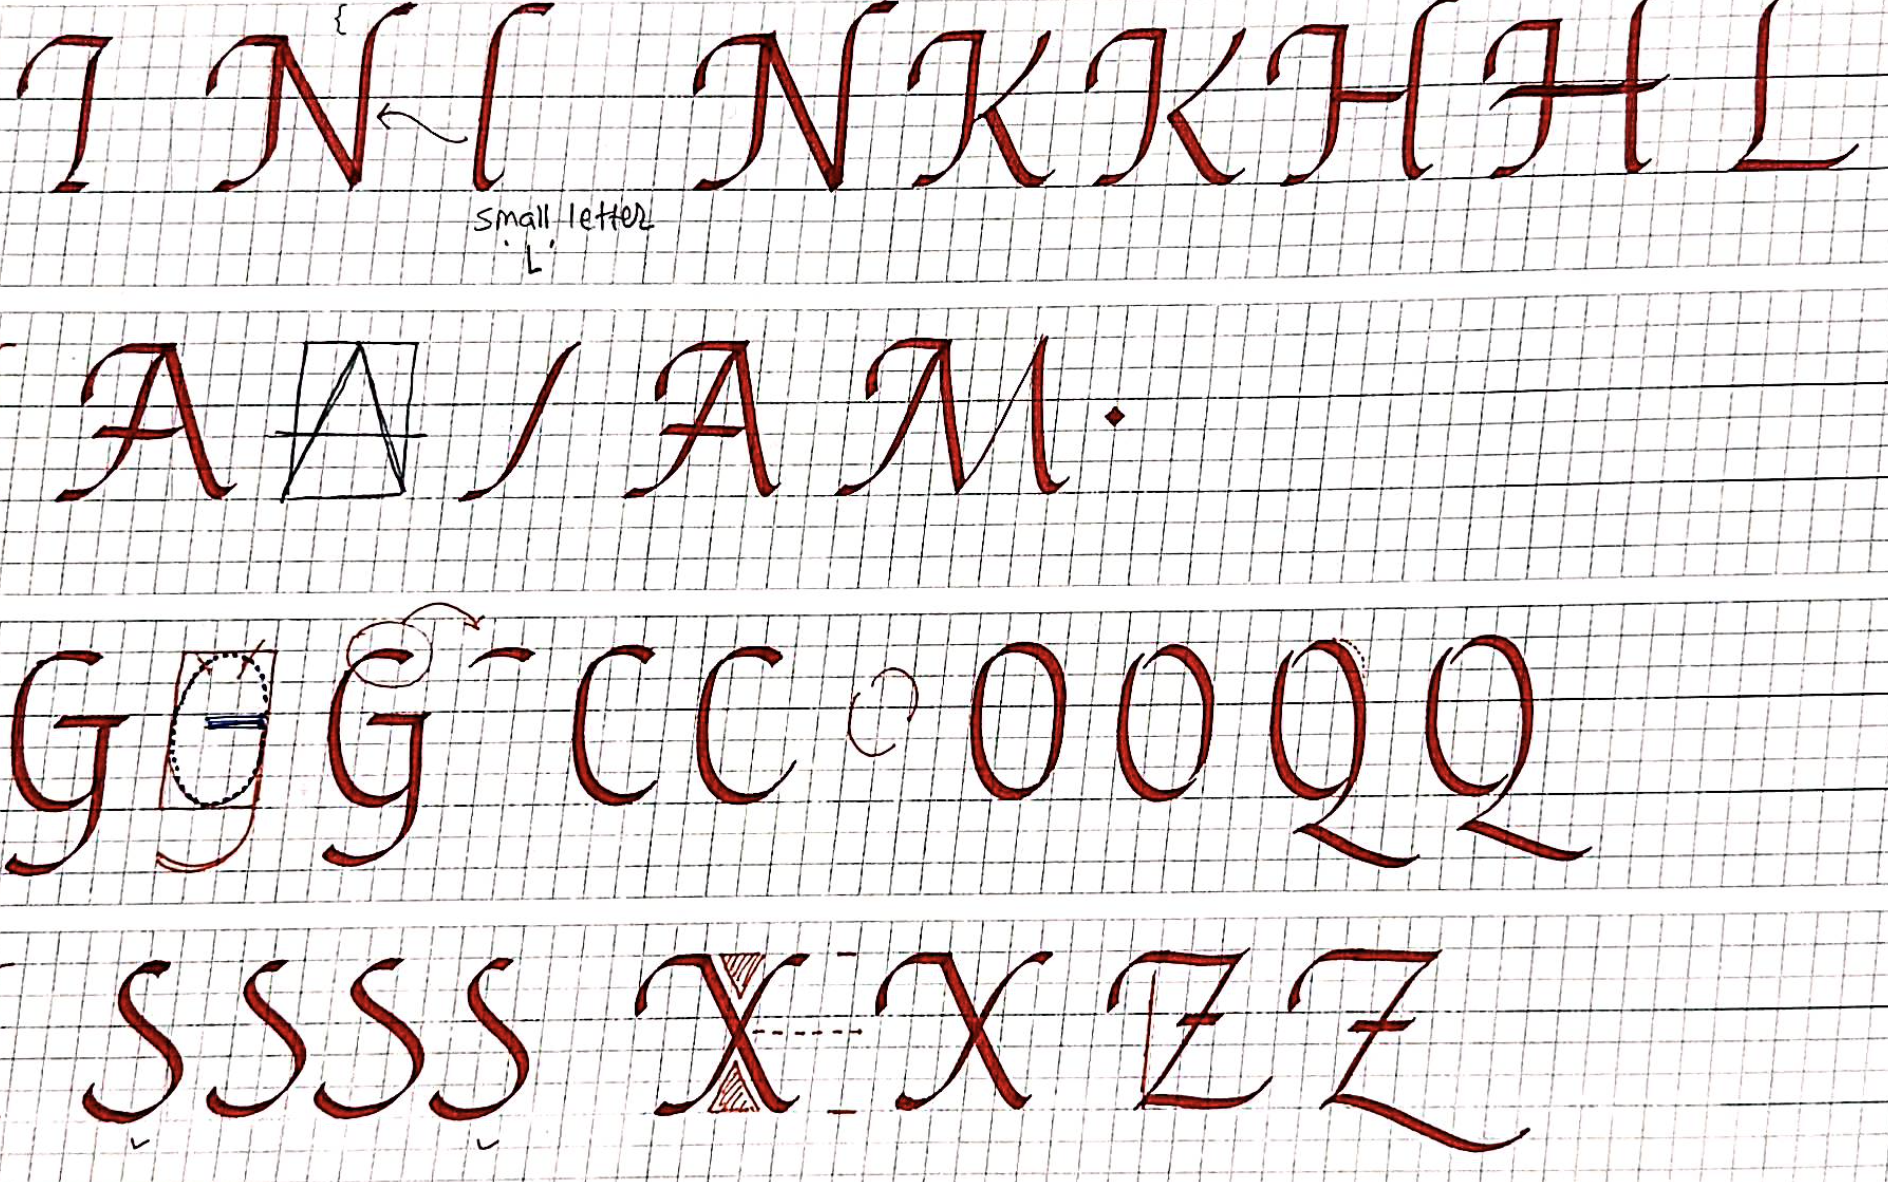 I N l N K K H H L
small letter
'L'
A A / A M
G G G C C O O Q Q
S S S S X X Z Z